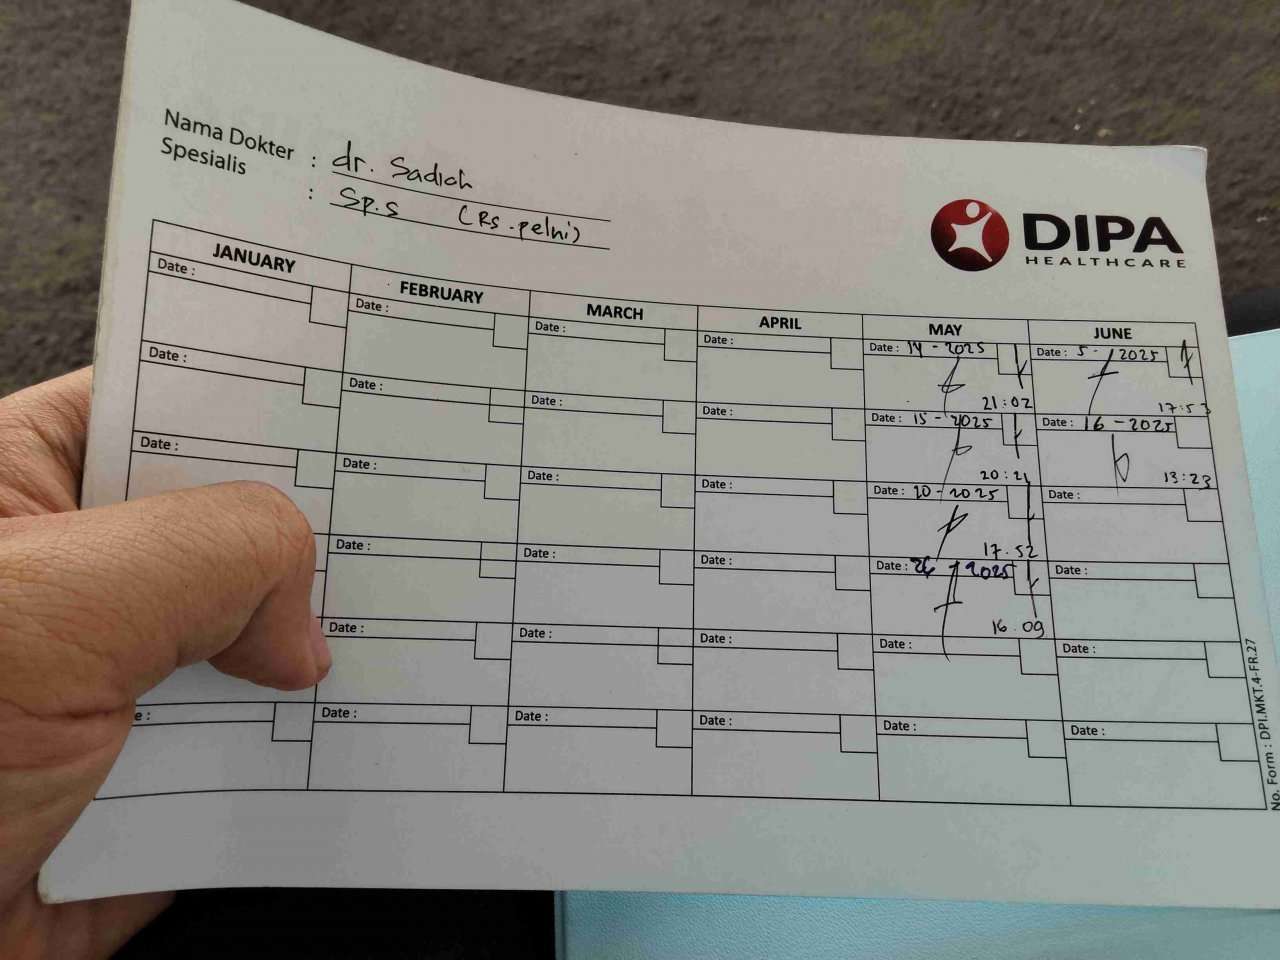 Nama Dokter : dr. Sadiah
Spesialis : Sp.S (RS.pelni)
DIPA
HEALTHCARE
JANUARY FEBRUARY MARCH APRIL MAY JUNE
Date : Date : Date : Date : Date : 14 - 2025 Date : 5 - 2025
21:02 17:53
Date : Date : Date : Date : Date : 15 - 2025 Date : 16 - 2025
20:21 13:23
Date : Date : Date : Date : Date : 20 - 2025 Date :
17.52
Date : Date : Date : Date : 26 - 2025 Date :
16.09
Date : Date : Date : Date : Date :
e : Date : Date : Date : Date : Date :
No. Form : DPI.MKT.4-FR.27